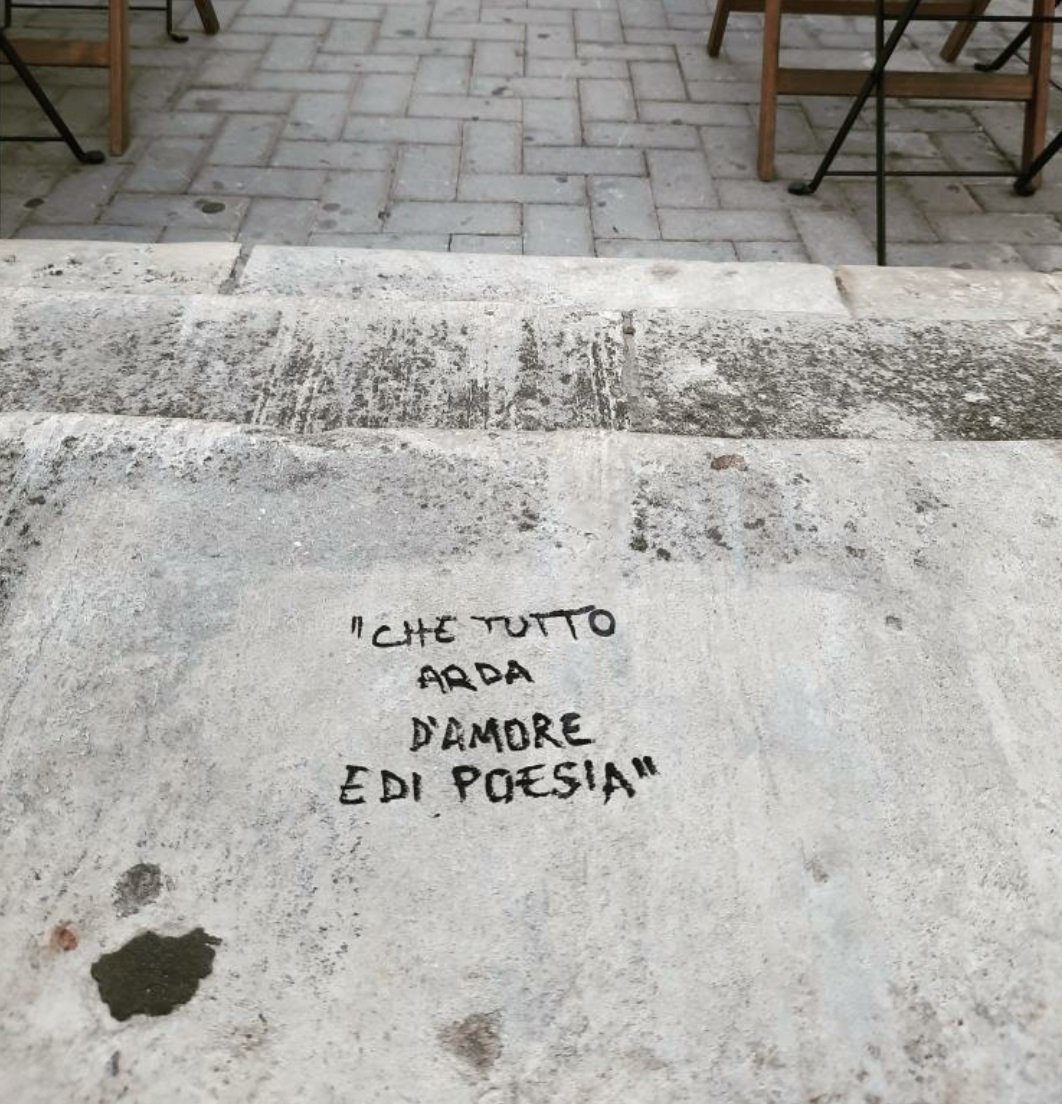 "CHE TUTTO
ARDA
D'AMORE
E DI POESIA"